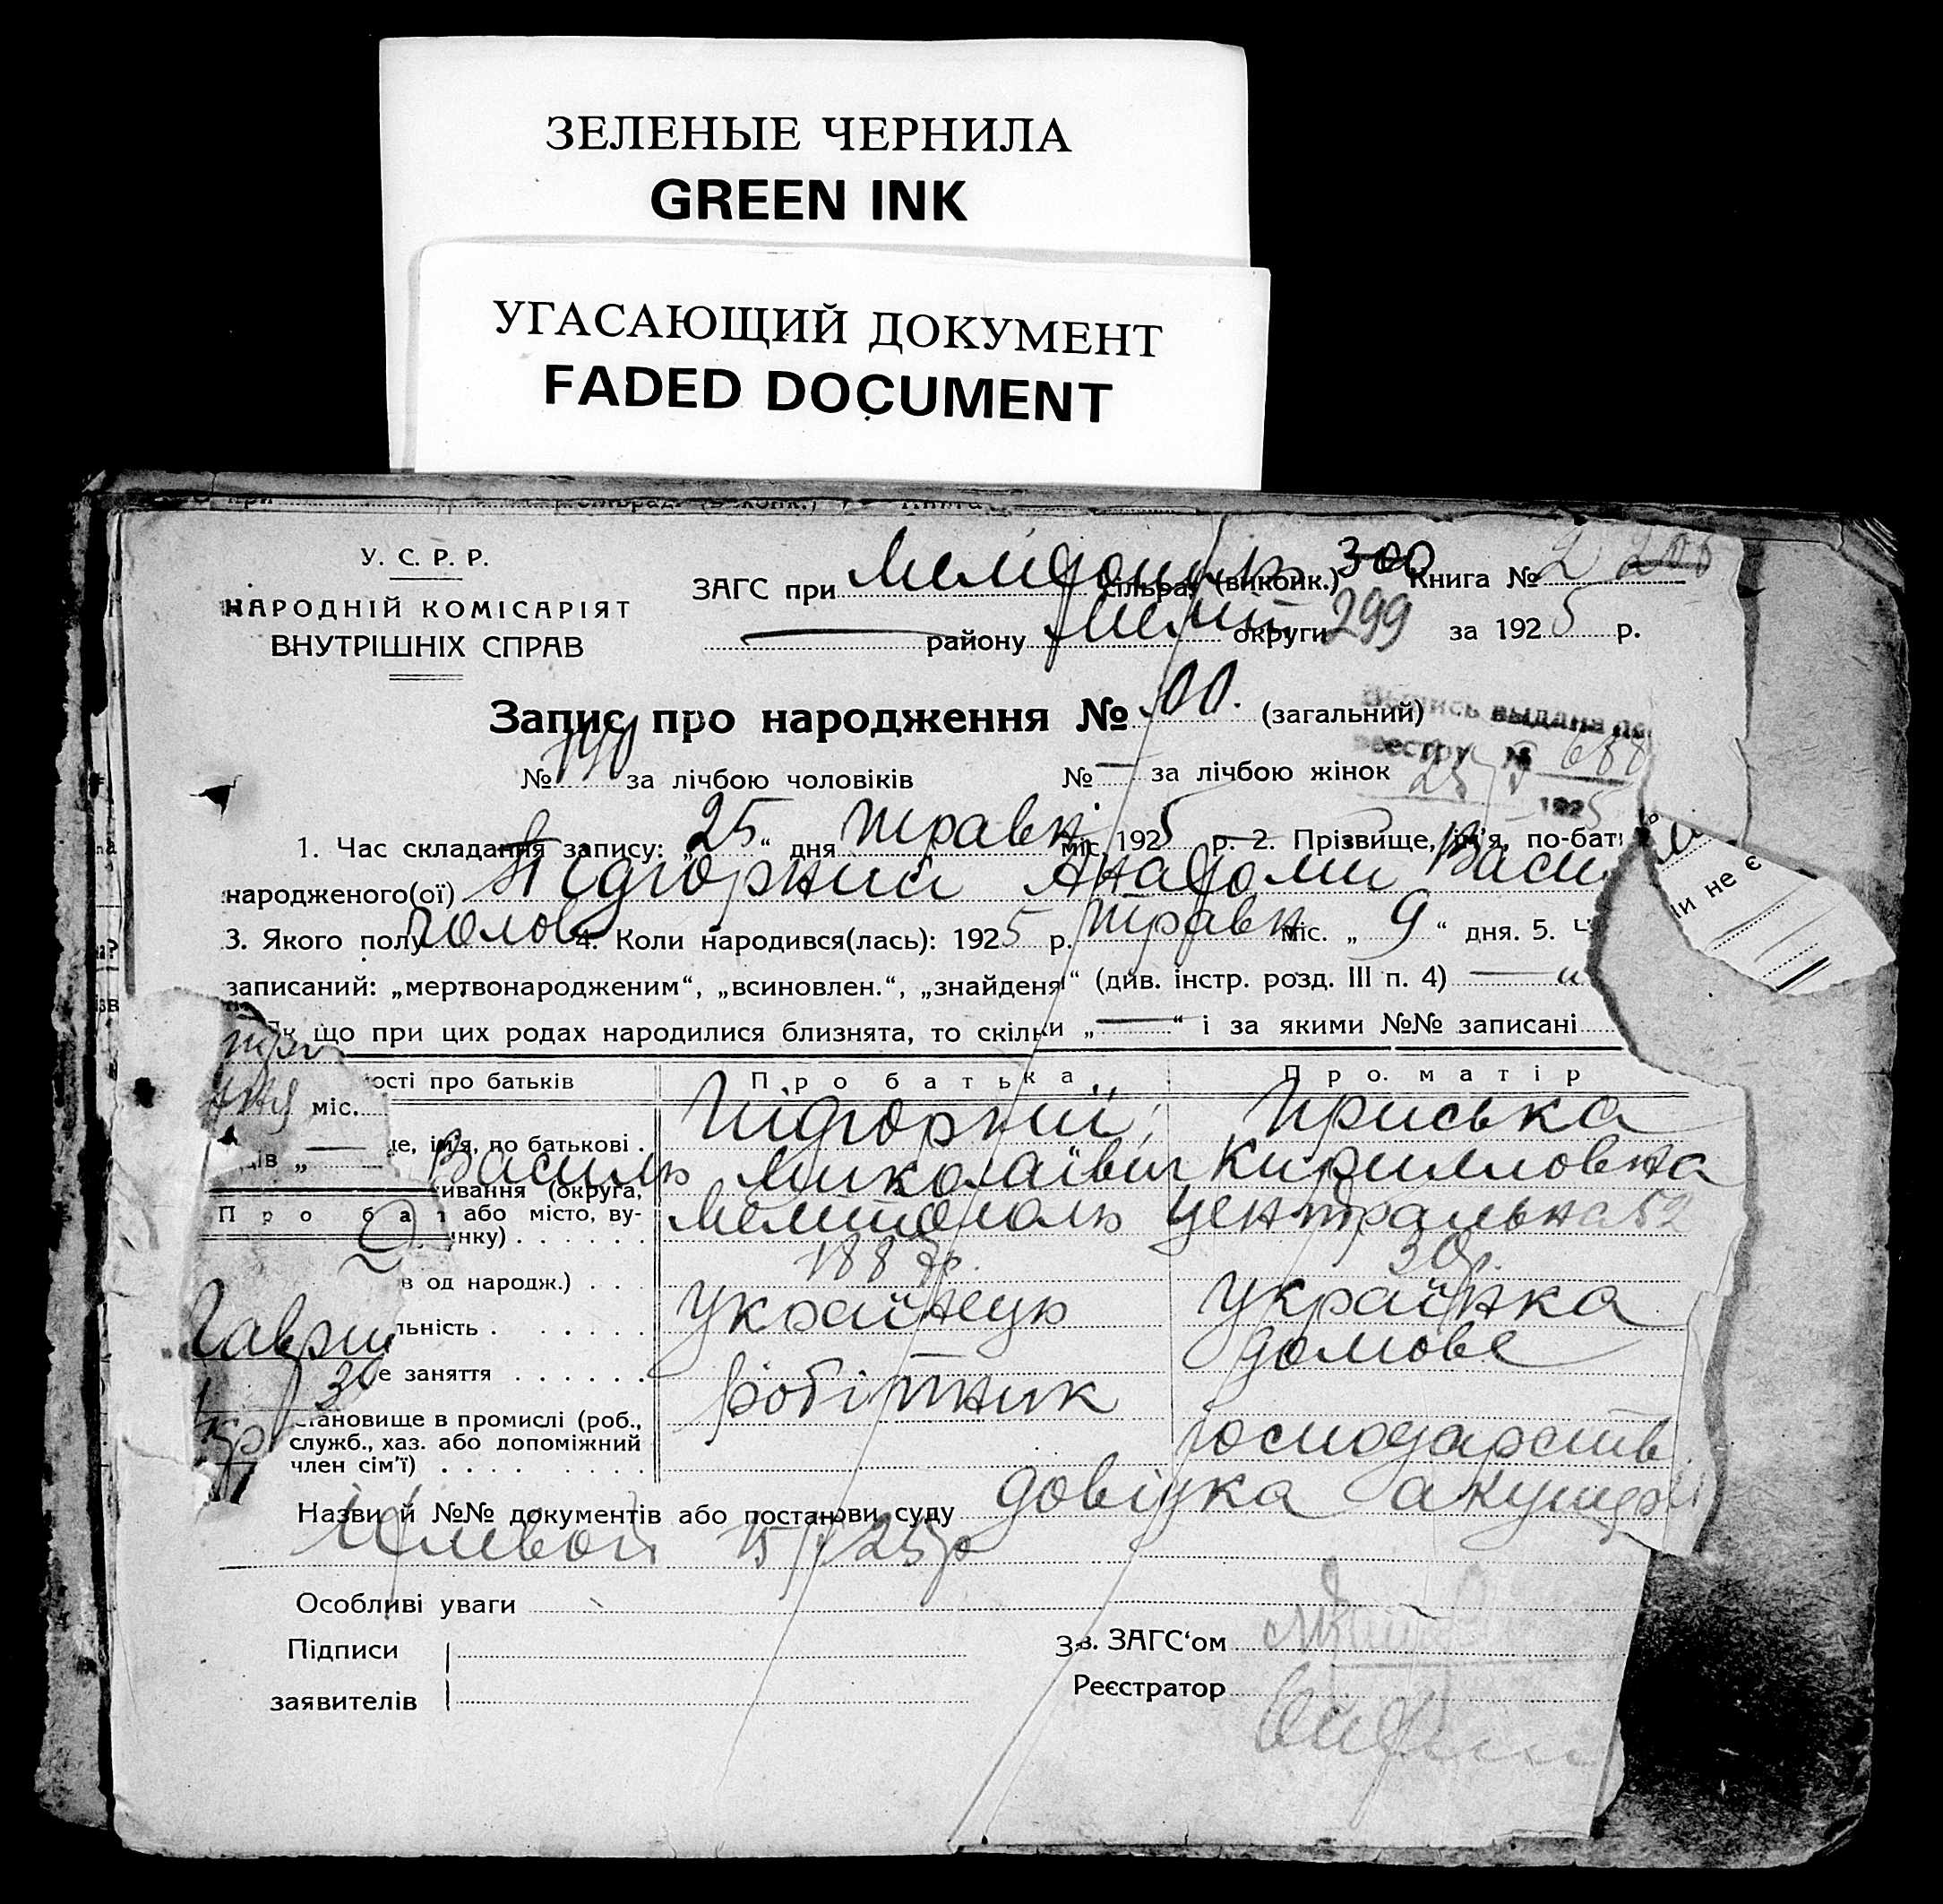 ЗЕЛЕНЫЕ ЧЕРНИЛА
GREEN INK
УГАСАЮЩИЙ ДОКУМЕНТ
FADED DOCUMENT
У. С. Р. Р.
НАРОДНІЙ КОМІСАРІЯТ
ВНУТРІШНІХ СПРАВ
ЗАГС при сільрад. (виконк.) 300 Книга № 2
району Меліт округи 299 за 1925 р.
Запис про народження № 00. (загальний)
выдана по
реестру № 688
25 1925
№ за лічбою чоловіків № — за лічбою жінок
1. Час складання запису: „25“ дня травн міс. 1925 р. 2. Прізвище, ім'я, по-бат
народженого(ої) Підгорний Анатолий Васи
3. Якого полу чолов 4. Коли народився(лась): 1925 р. травн міс. „9“ дня. 5. Ч
ли не є
записаний: „мертвонародженим“, „всиновлен.“, „знайдено“ (див. інстр. розд. III п. 4) — "
Як що при цих родах народилися близнята, то скільки „—“ і за якими №№ записані
ості про батьків Про батька Про матір
міс.
ПідгорнийПриська
це, ім'я, по батькові
Василь Миколаївич Кирилловна
ивання (округа,
Про бат або місто, ву-
нку) Мелитополь Центральна 52
в од народж.) 188 30р.
льність українець українка
е заняття робітник домове
30
становище в промислі (роб.,
служб., хаз. або допоміжний
член сім'ї) господарств
Назви й №№ документів або постанови суду довідка акушер
25р
Особливі уваги
Підписи
заявителів
Зв. ЗАГС'ом
Реєстратор